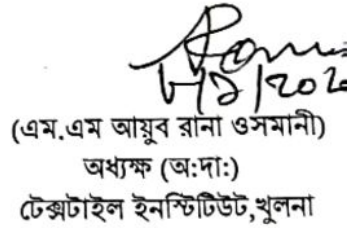 (এম.এম আয়ুব রানা ওসমানী)
অধ্যক্ষ (অ:দা:)
টেক্সটাইল ইনস্টিটিউট,খুলনা